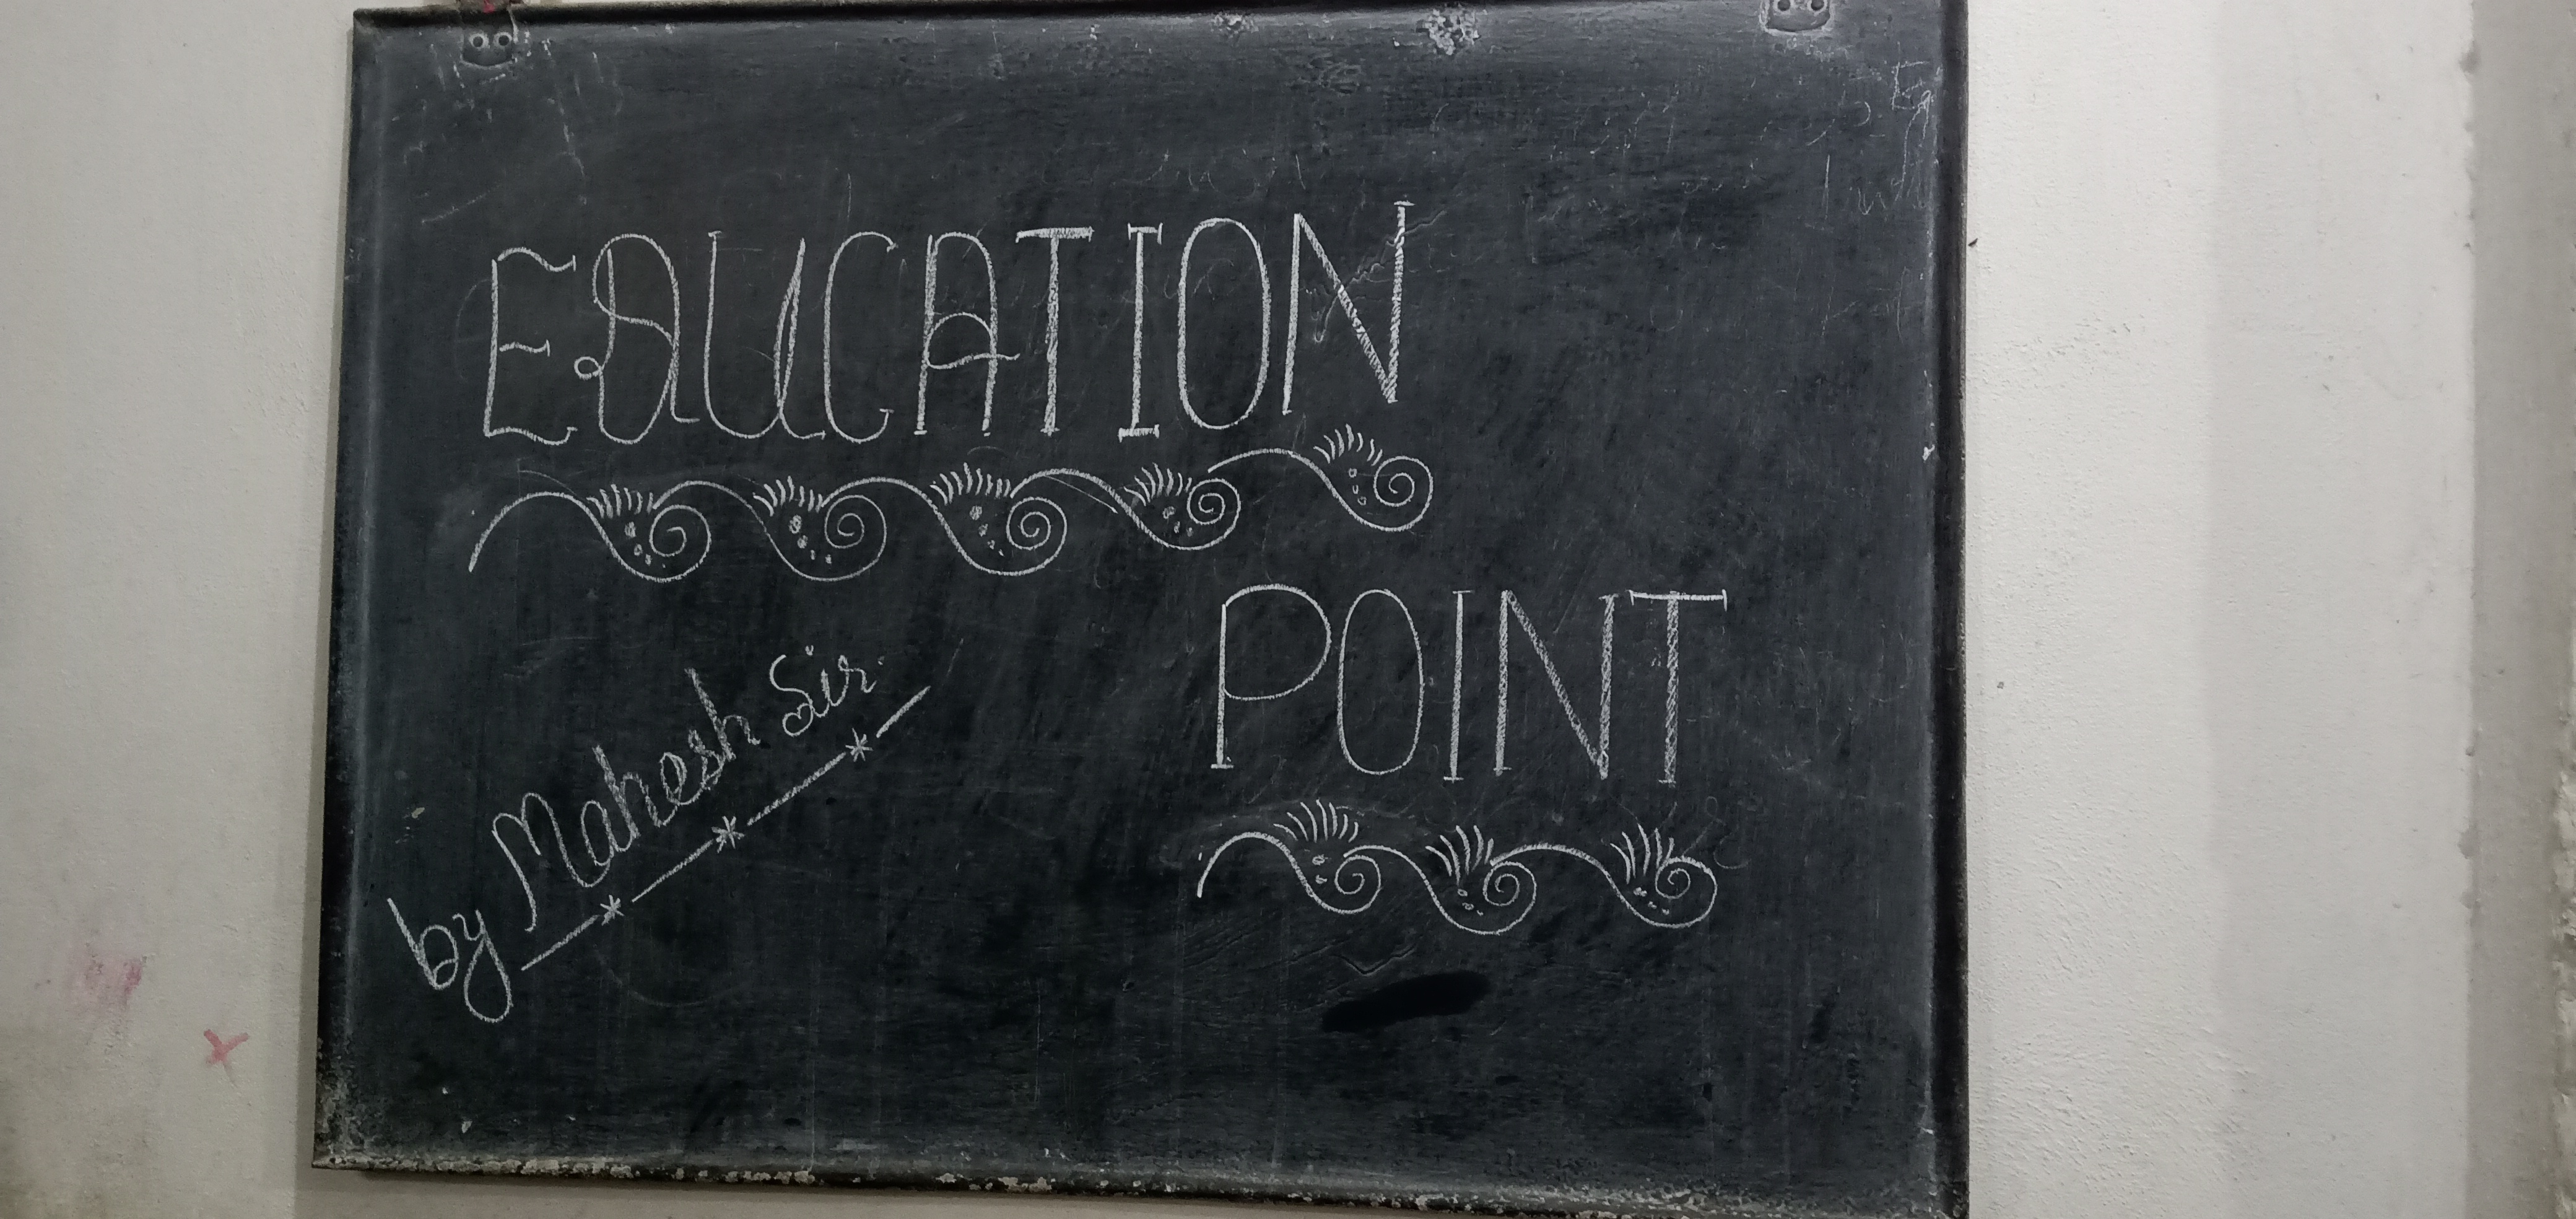 EDUCATION
POINT
by Mahesh Sir.